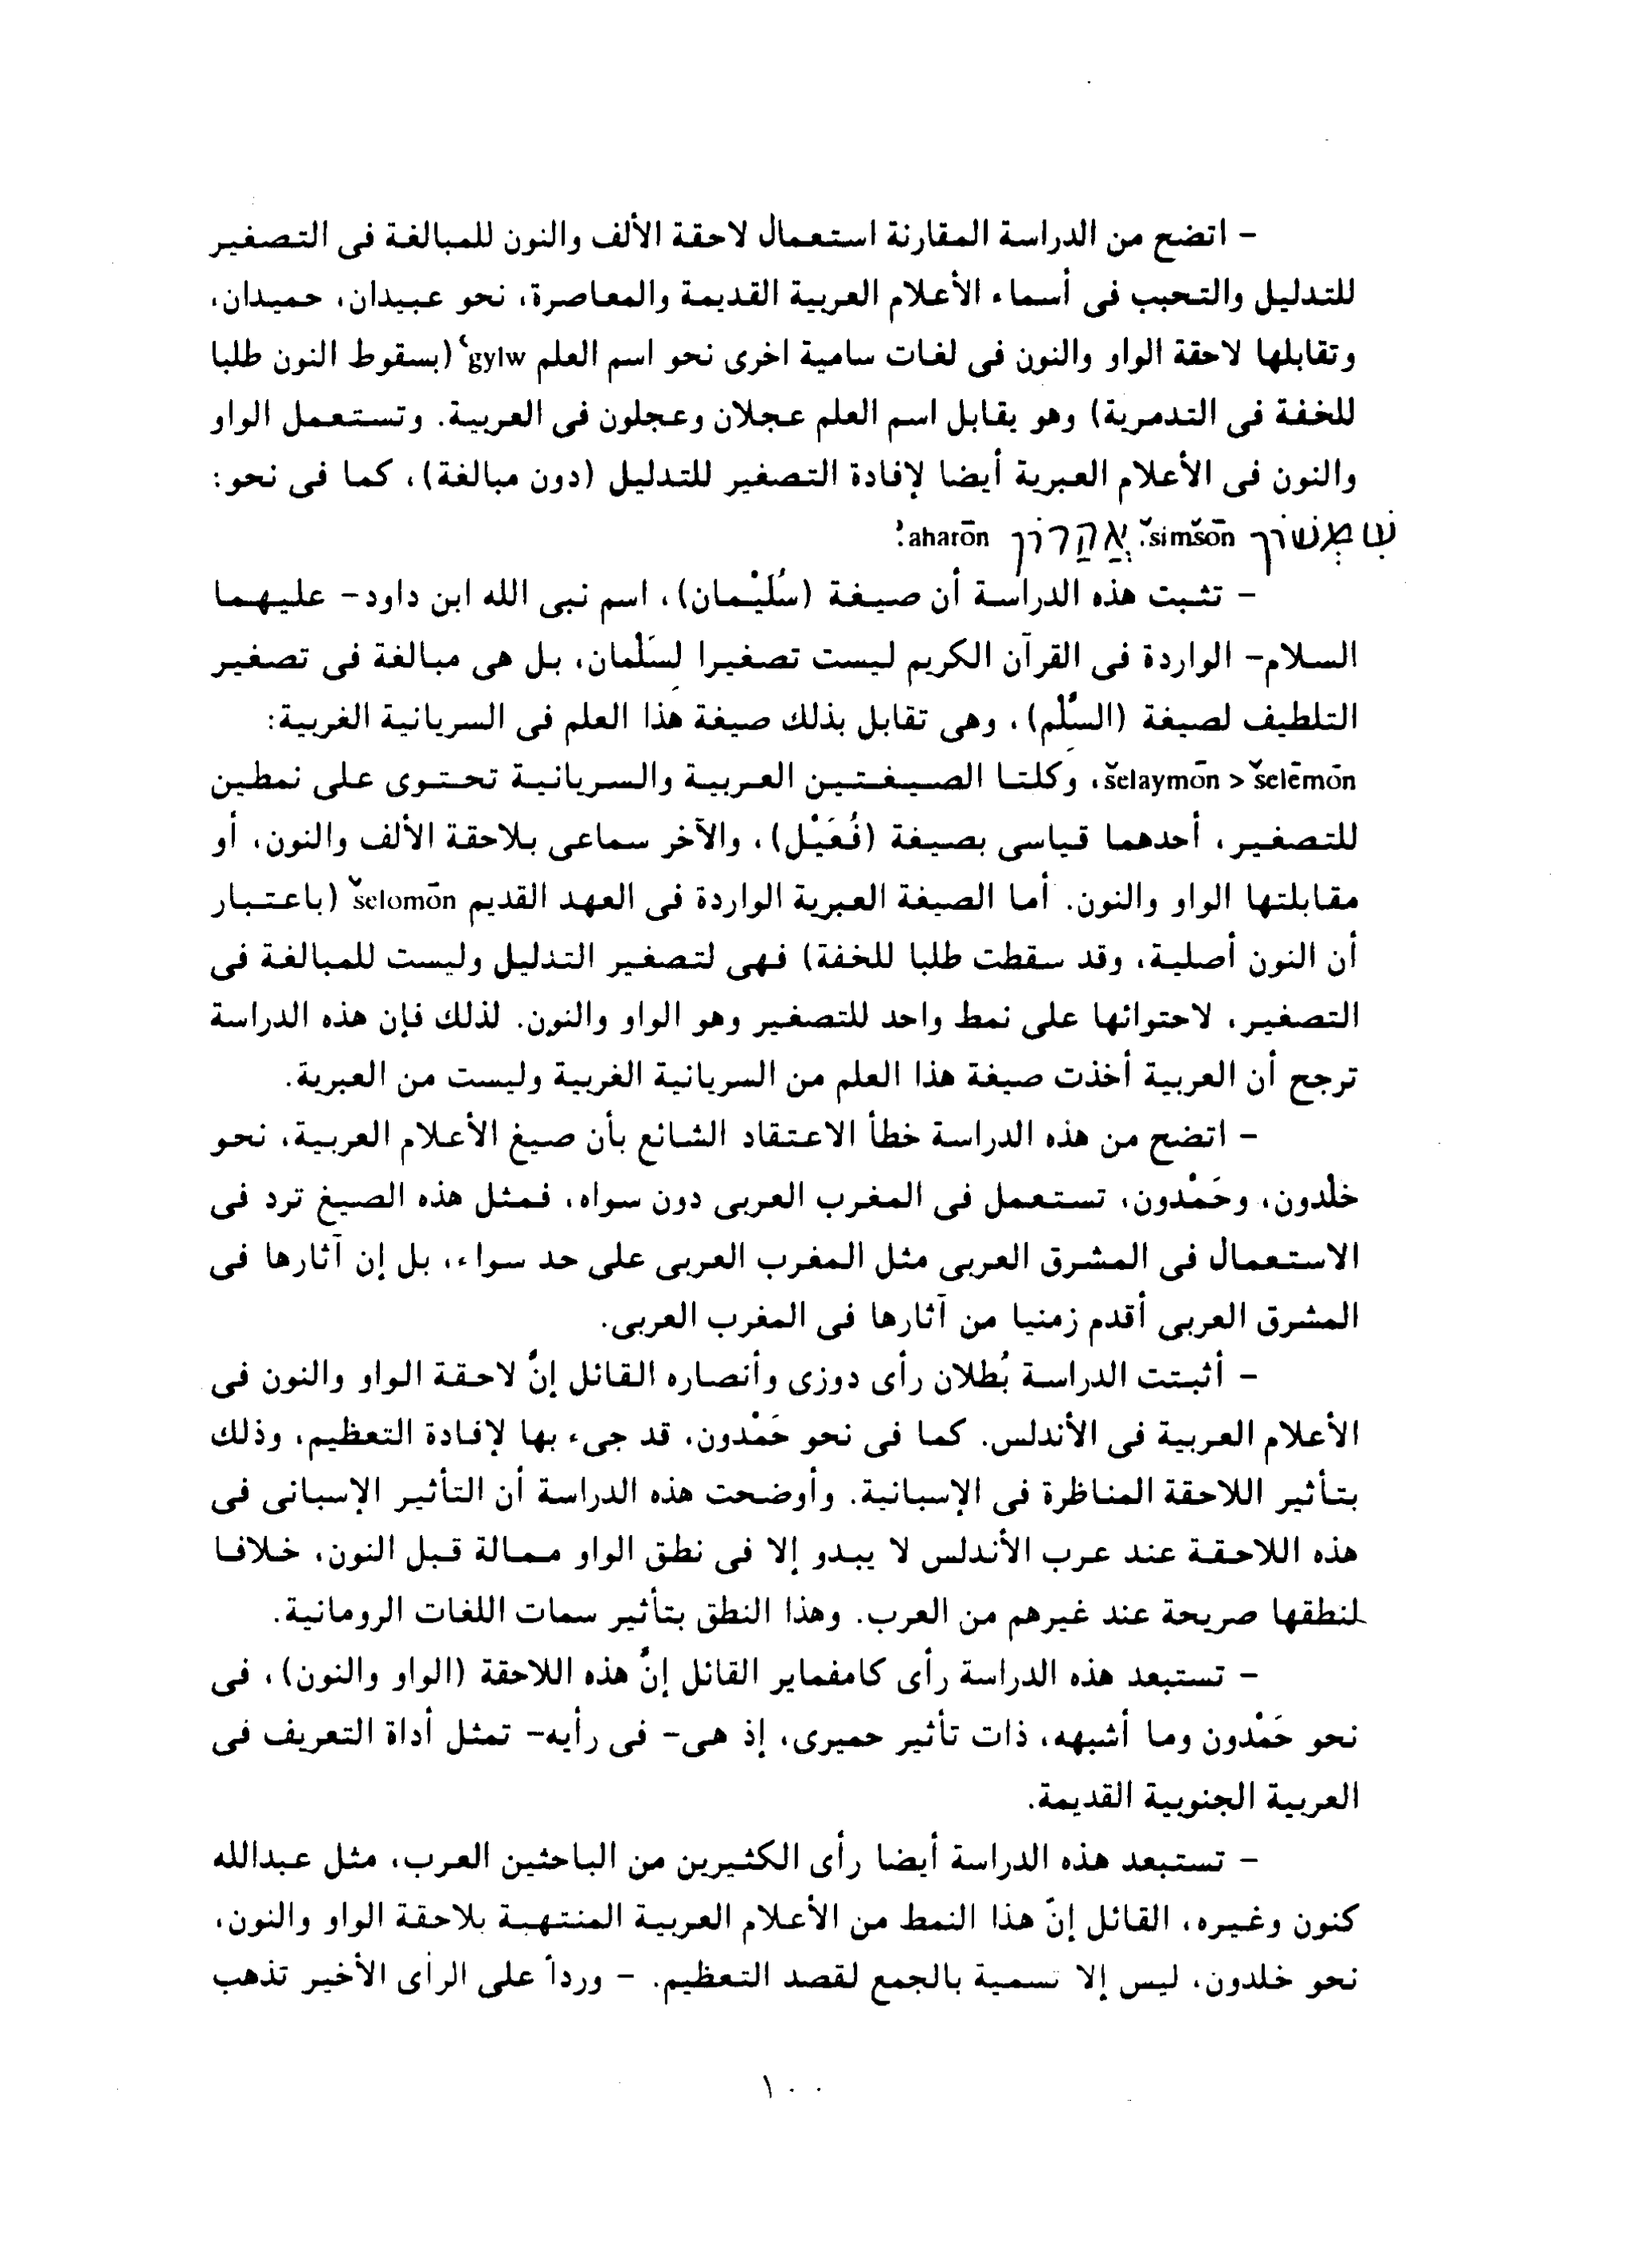 - اتضح من الدراسة المقارنة استعمال لاحقة الألف والنون للمبالغة فى التصغير
للتدليل والتحبب فى أسماء الأعلام العربية القديمة والمعاصرة، نحو عبيدان، حميدان،
وتقابلها لاحقة الواو والنون فى لغات سامية اخرى نحو اسم العلم gylw‘ (بسقوط النون طلبا
للخفة فى التدمرية) وهو يقابل اسم العلم عجلان وعجلون فى العربية. وتستعمل الواو
والنون فى الأعلام العبرية أيضا لإفادة التصغير للتدليل (دون مبالغة)، كما فى نحو:
שִׁמְשׁוֹן šimšōn، אַהֲרוֹן aharōn’.
- تثبت هذه الدراسة أن صيغة (سُلَيْمان)، اسم نبى الله ابن داود- عليهما
السلام- الواردة فى القرآن الكريم ليست تصغيرا لسَلْمان، بل هى مبالغة فى تصغير
التلطيف لصيغة (السَّلْم)، وهى تقابل بذلك صيغة هذا العلم فى السريانية الغربية:
šelaymōn > šelēmōn، وكلتا الصيغتين العربية والسريانية تحتوى على نمطين
للتصغير، أحدهما قياسى بصيغة (فُعَيْل)، والآخر سماعى بلاحقة الألف والنون، أو
مقابلتها الواو والنون. أما الصيغة العبرية الواردة فى العهد القديم šelomōn (باعتبار
أن النون أصلية، وقد سقطت طلبا للخفة) فهى لتصغير التدليل وليست للمبالغة فى
التصغير، لاحتوائها على نمط واحد للتصغير وهو الواو والنون. لذلك فإن هذه الدراسة
ترجح أن العربية أخذت صيغة هذا العلم من السريانية الغربية وليست من العبرية.
- اتضح من هذه الدراسة خطأ الاعتقاد الشائع بأن صيغ الأعلام العربية، نحو
خلْدون، وحَمْدون، تستعمل فى المغرب العربى دون سواه، فمثل هذه الصيغ ترد فى
الاستعمال فى المشرق العربى مثل المغرب العربى على حد سواء، بل إن آثارها فى
المشرق العربى أقدم زمنيا من آثارها فى المغرب العربى.
- أثبتت الدراسة بُطلان رأى دوزى وأنصاره القائل إنَّ لاحقة الواو والنون فى
الأعلام العربية فى الأندلس. كما فى نحو حَمْدون، قد جىء بها لإفادة التعظيم، وذلك
بتأثير اللاحقة المناظرة فى الإسبانية. وأوضحت هذه الدراسة أن التأثير الإسبانى فى
هذه اللاحقة عند عرب الأندلس لا يبدو إلا فى نطق الواو ممالة قبل النون، خلافا
لنطقها صريحة عند غيرهم من العرب. وهذا النطق بتأثير سمات اللغات الرومانية.
- تستبعد هذه الدراسة رأى كامفماير القائل إنَّ هذه اللاحقة (الواو والنون)، فى
نحو حَمْدون وما أشبهه، ذات تأثير حميرى، إذ هى- فى رأيه- تمثل أداة التعريف فى
العربية الجنوبية القديمة.
- تستبعد هذه الدراسة أيضا رأى الكثيرين من الباحثين العرب، مثل عبدالله
كنون وغيره، القائل إنّ هذا النمط من الأعلام العربية المنتهية بلاحقة الواو والنون،
نحو خلدون، ليس إلا تسمية بالجمع لقصد التعظيم. - ورداً على الرأى الأخير تذهب
١٠٠